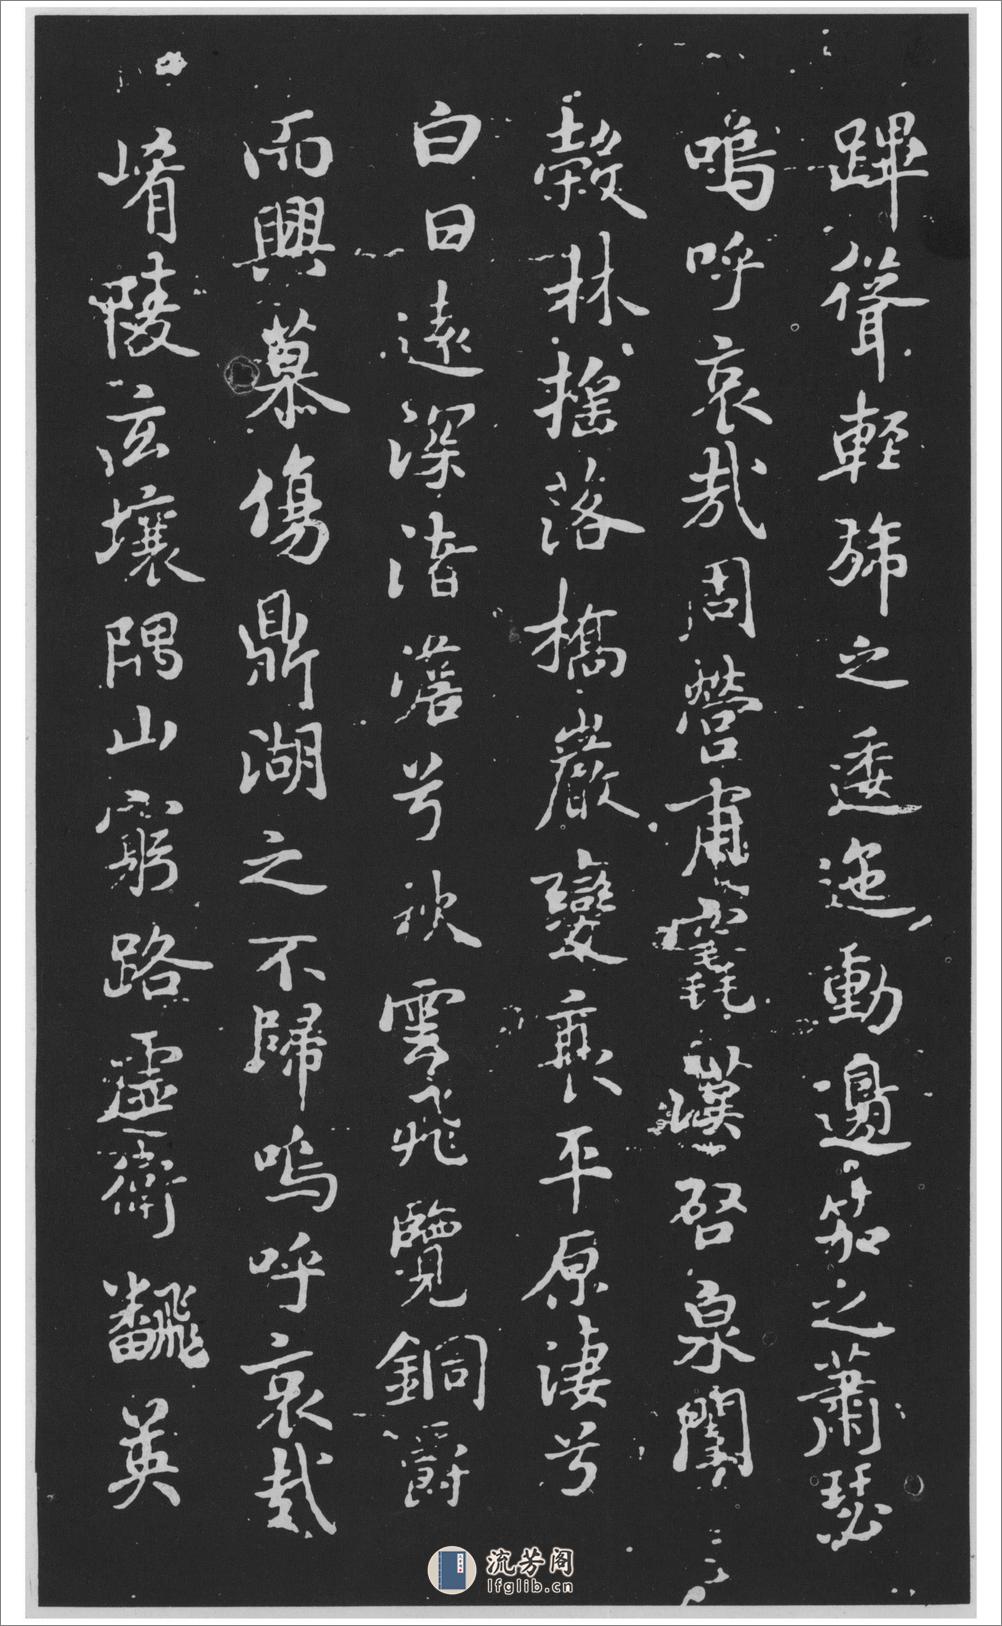 蹕聳輕旆之逶迤動邊笳之蕭瑟
嗚呼哀哉周營甫竁漢啓泉闈
穀林搖落橋巖變衰平原淒兮
白日遠深渚澹兮秋雲飛覽銅爵
而興慕傷鼎湖之不歸嗚呼哀哉
崤陵玄壤隅山窮路虛衛飜英
流芳阁
lfglib.cn